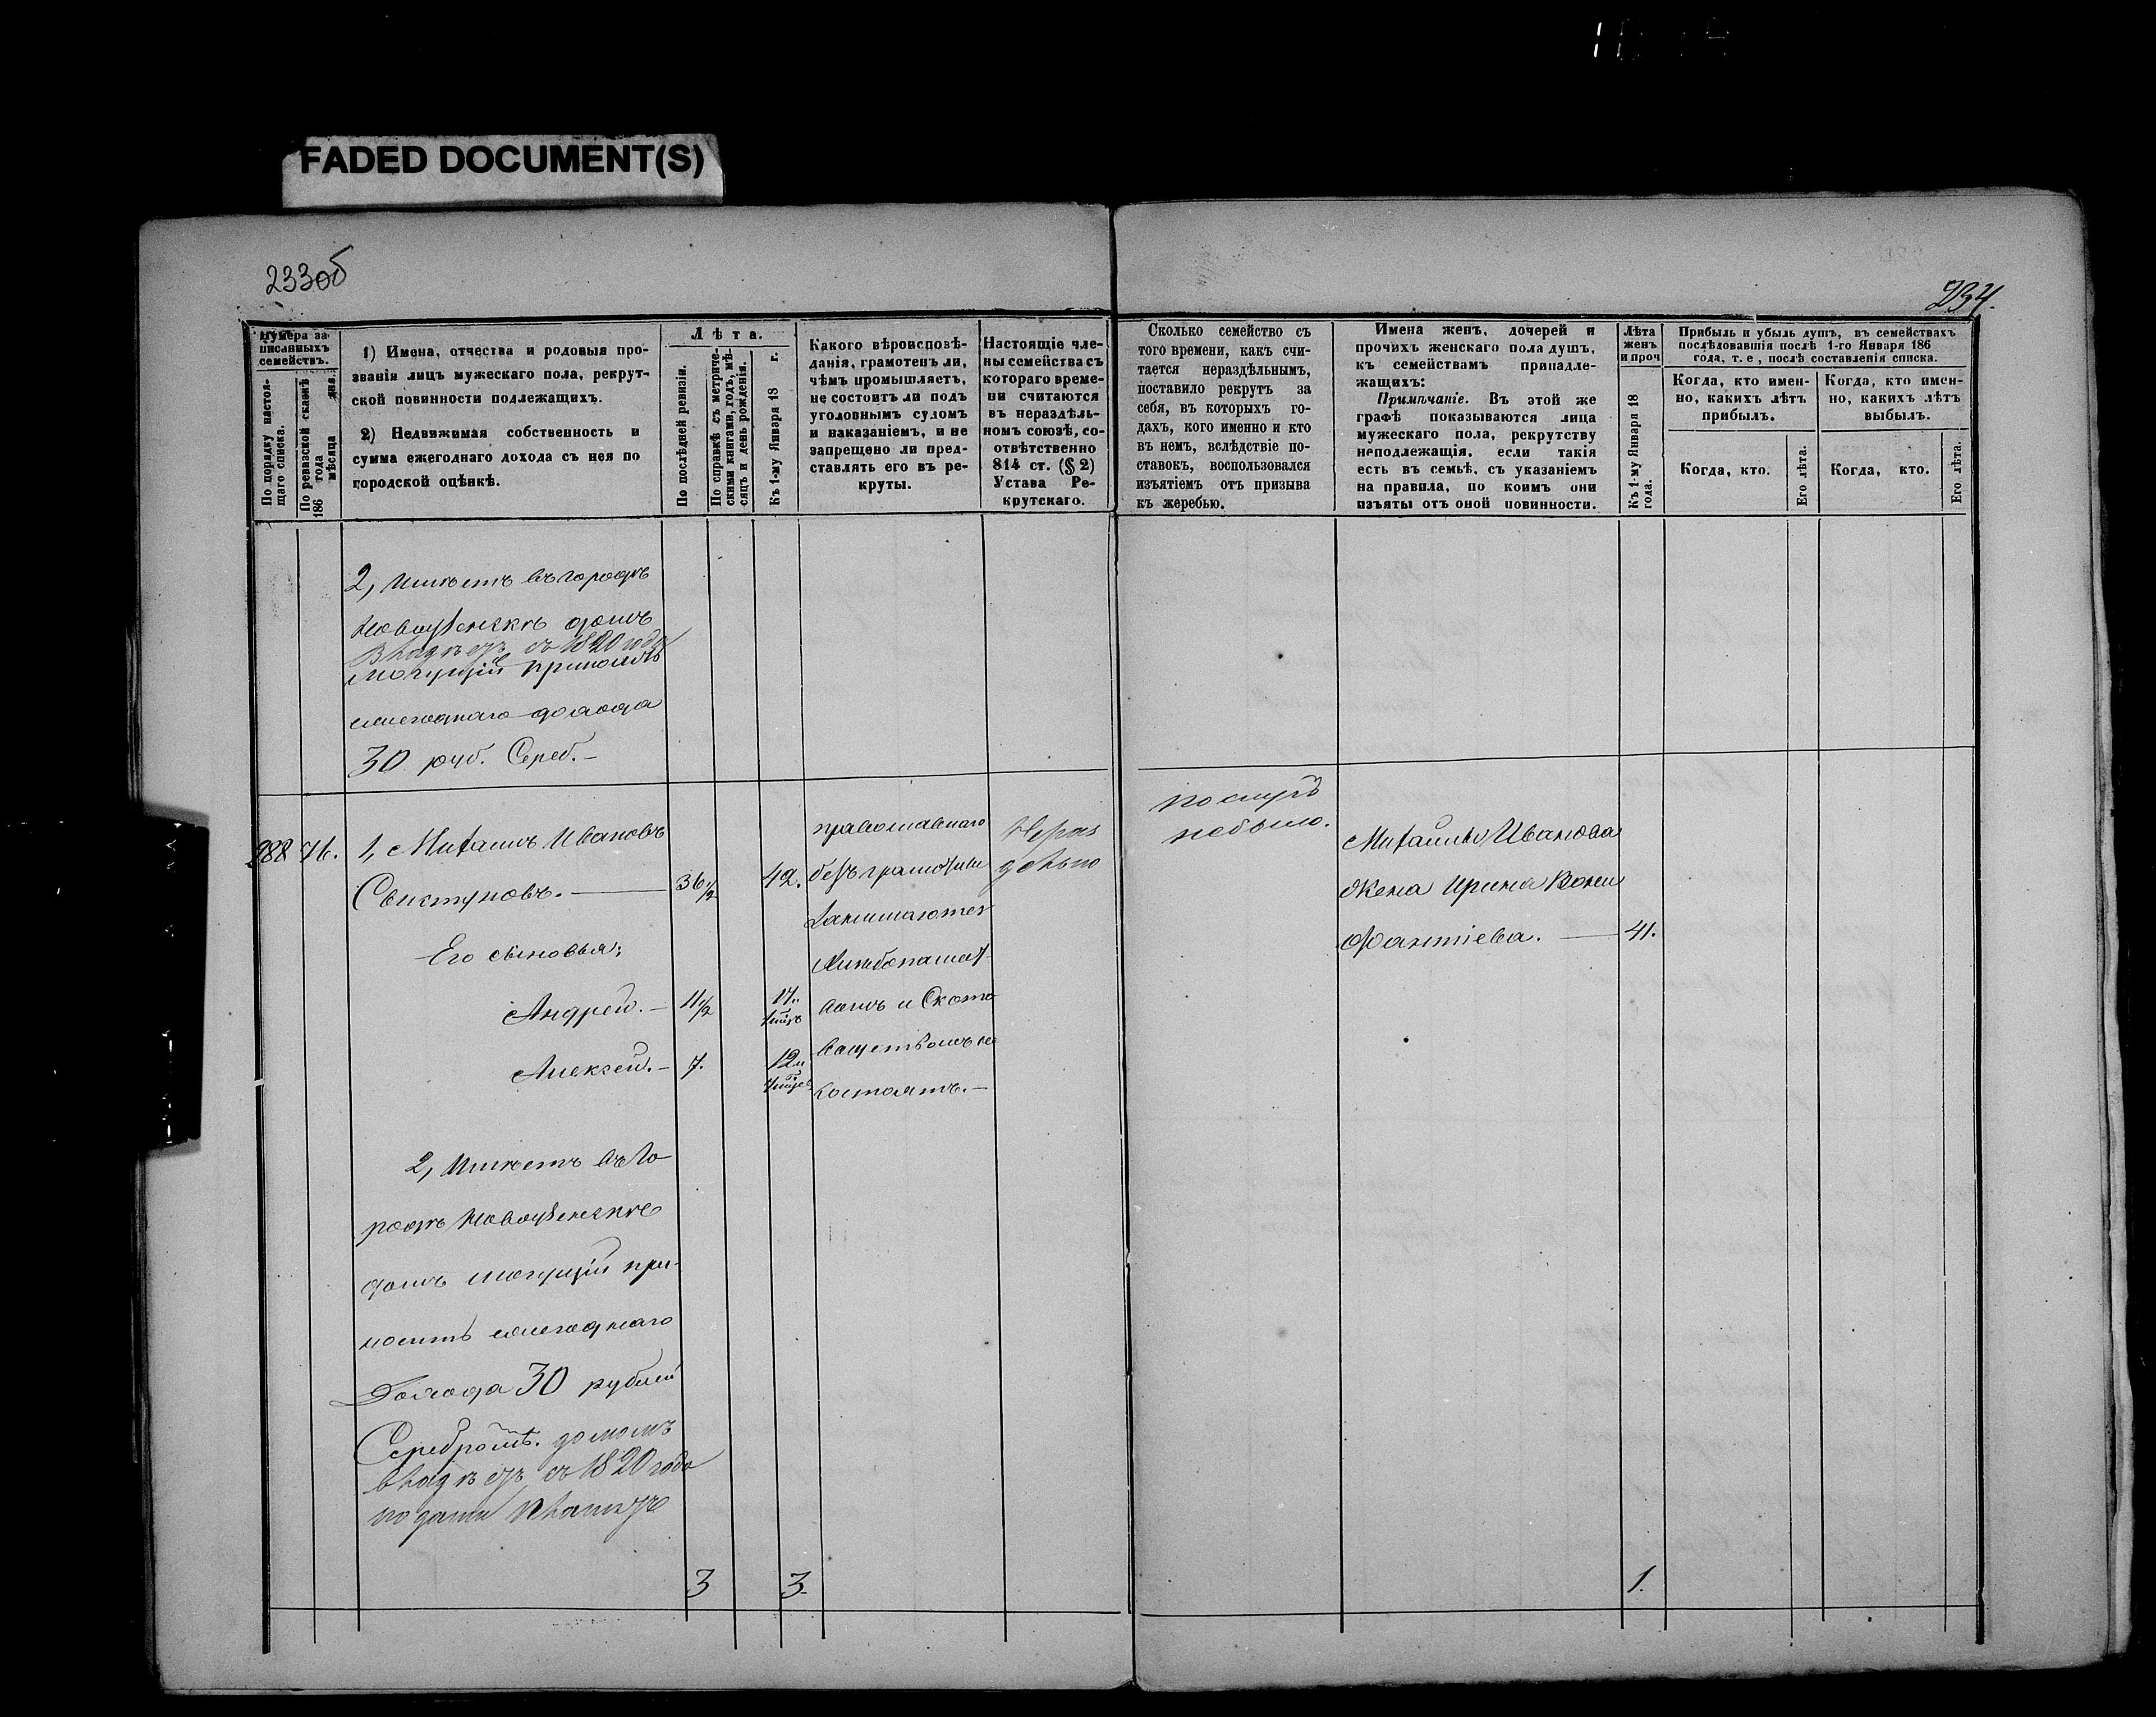 FADED DOCUMENT(S)
233об
234.
Нумера за
писанныхъ
семействъ.
По порядку настоя-
щаго списка.
По ревизской сказкѣ
186 года
мѣсяца дня.
1) Имена, отчества и родовыя про-
званія лицъ мужескаго пола, рекрут-
ской повинности подлежащихъ.
2) Недвижимая собственность и
сумма ежегоднаго дохода съ нея по
городской оцѣнкѣ.
Лѣта.
По послѣдней ревизіи.
По справкѣ съ метриче-
скими книгами, годъ, мѣ-
сяцъ и день рожденія.
Къ 1-му Января 18 г.
Какого вѣроисповѣ-
данія, грамотенъ ли,
чѣмъ промышляетъ,
не состоитъ ли подъ
уголовнымъ судомъ
и наказаніемъ, и не
запрещено ли пред-
ставлять его въ ре-
круты.
Настоящіе чле-
ны семейства съ
котораго време-
ни считаются
въ нераздѣль-
номъ союзѣ, со-
отвѣтственно
814 ст. (§ 2)
Устава Ре-
крутскаго.
Сколько семейство съ
того времени, какъ счи-
тается нераздѣльнымъ,
поставило рекрутъ за
себя, въ которыхъ го-
дахъ, кого именно и кто
въ немъ, вслѣдствіе по-
ставокъ, воспользовался
изъятіемъ отъ призыва
къ жеребью.
Имена женъ, дочерей и
прочихъ женскаго пола душъ,
къ семействамъ принадле-
жащихъ:
Примѣчаніе. Въ этой же
графѣ показываются лица
мужескаго пола, рекрутству
неподлежащія, если такія
есть въ семьѣ, съ указаніемъ
на правила, по коимъ они
изъяты отъ оной повинности.
Лѣта
женъ
и проч
Къ 1-му Января 18
года.
Прибыль и убыль душъ, въ семействахъ
послѣдовавшія послѣ 1-го Января 186
года, т. е, послѣ составленія списка.
Когда, кто имен-
но, какихъ лѣтъ
прибылъ.
Когда, кто имен-
но, какихъ лѣтъ
выбылъ.
Когда, кто.
Его лѣта.
Когда, кто.
Его лѣта.
2, Имѣетъ въ городѣ
Новоузенскѣ домъ
съ 1820 года
могущій приносить
ежегоднаго дохода
30 руб. Сереб.—
288 76.
1, Михаилъ Ивановъ
Свистуновъ. — 36½ 42.
Его сыновья:
Андрей. — 11½ 17
Алексей. — 7. 12
2, Имѣетъ въ го-
родѣ Новоузенскѣ
домъ могущій при-
носить ежегоднаго
Дохода 30 рублей
Серебромъ. домомъ
съ 1820 года
православнаго
безъ грамотны
занимаются
хлѣбопашест
вомъ и Ското
водствомъ не
состоятъ.—
Нераз
дѣльно
поступ
небыло.
Михаилы Иванова
Жена Ирина Вони
фантіева. — 41.
3 3. 1.